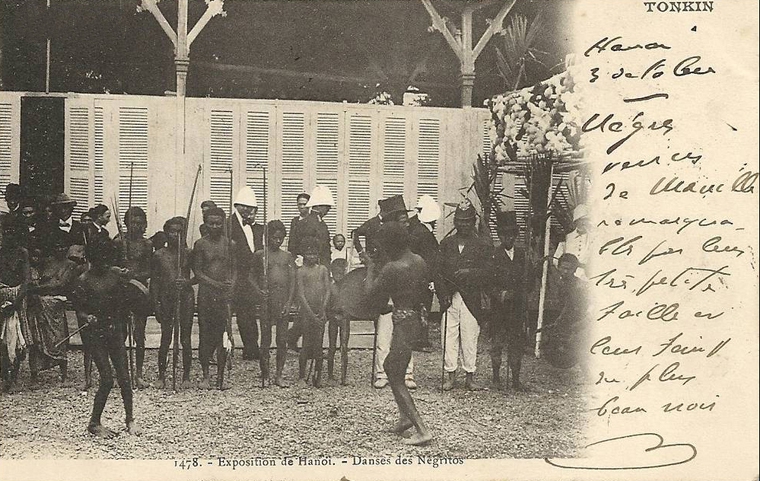 TONKIN
Hanoi
3 october
Nègres
venus
de Manille
remarqua-
bls par leur
très petite
taille et
leur teint
du plus
beau noir
1478. - Exposition de Hanoï. - Danses des Négritos